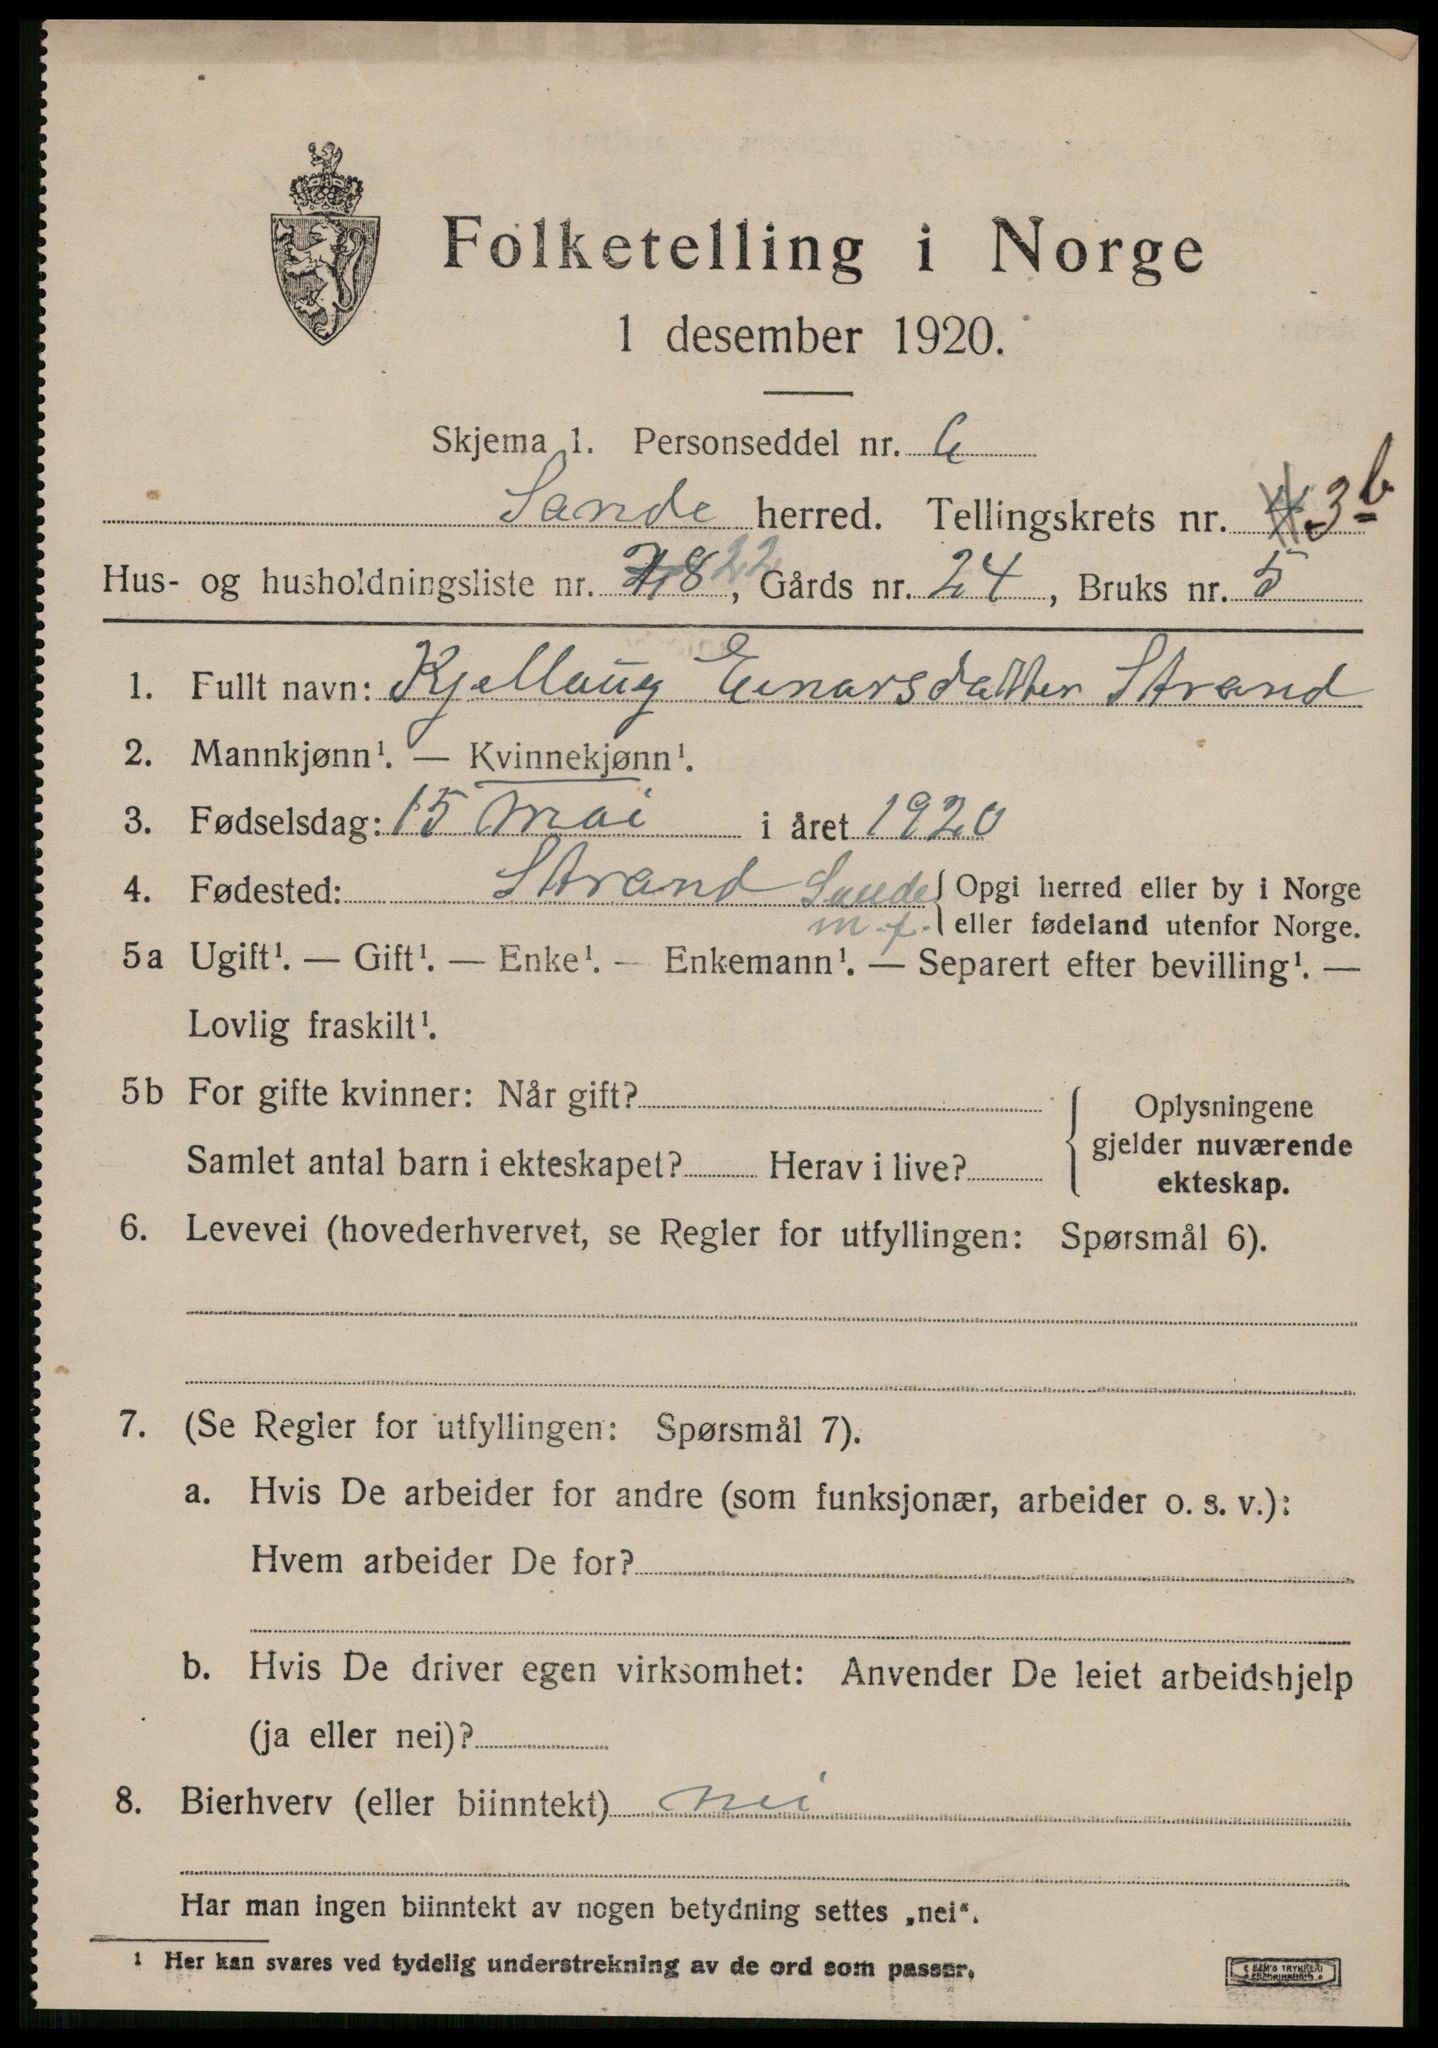 Folketelling i Norge
1 desember 1920.
Skjema 1. Personseddel nr. 6
Sande herred. Tellingskrets nr. 3b
Hus- og husholdningsliste nr. 22, Gårds nr. 24, Bruks nr. 5
1. Fullt navn: Kjellaug Einarsdatter Strand
2. Mannkjønn¹. — Kvinnekjønn¹.
3. Fødselsdag: 15 mai i året 1920
4. Fødested: Strand Sande { Opgi herred eller by i Norge
m.f. eller fødeland utenfor Norge.
5a Ugift¹. — Gift¹. — Enke¹. — Enkemann¹. — Separert efter bevilling¹. —
Lovlig fraskilt¹.
5b For gifte kvinner: Når gift? { Oplysningene
gjelder nuværende
Samlet antal barn i ekteskapet? Herav i live?
ekteskap.
6. Levevei (hovederhvervet, se Regler for utfyllingen: Spørsmål 6).
7. (Se Regler for utfyllingen: Spørsmål 7).
a. Hvis De arbeider for andre (som funksjonær, arbeider o. s. v.):
Hvem arbeider De for?
b. Hvis De driver egen virksomhet: Anvender De leiet arbeidshjelp
(ja eller nei)?
8. Bierhverv (eller biinntekt) nei
Har man ingen biinntekt av nogen betydning settes „nei".
¹ Her kan svares ved tydelig understrekning av de ord som passer.